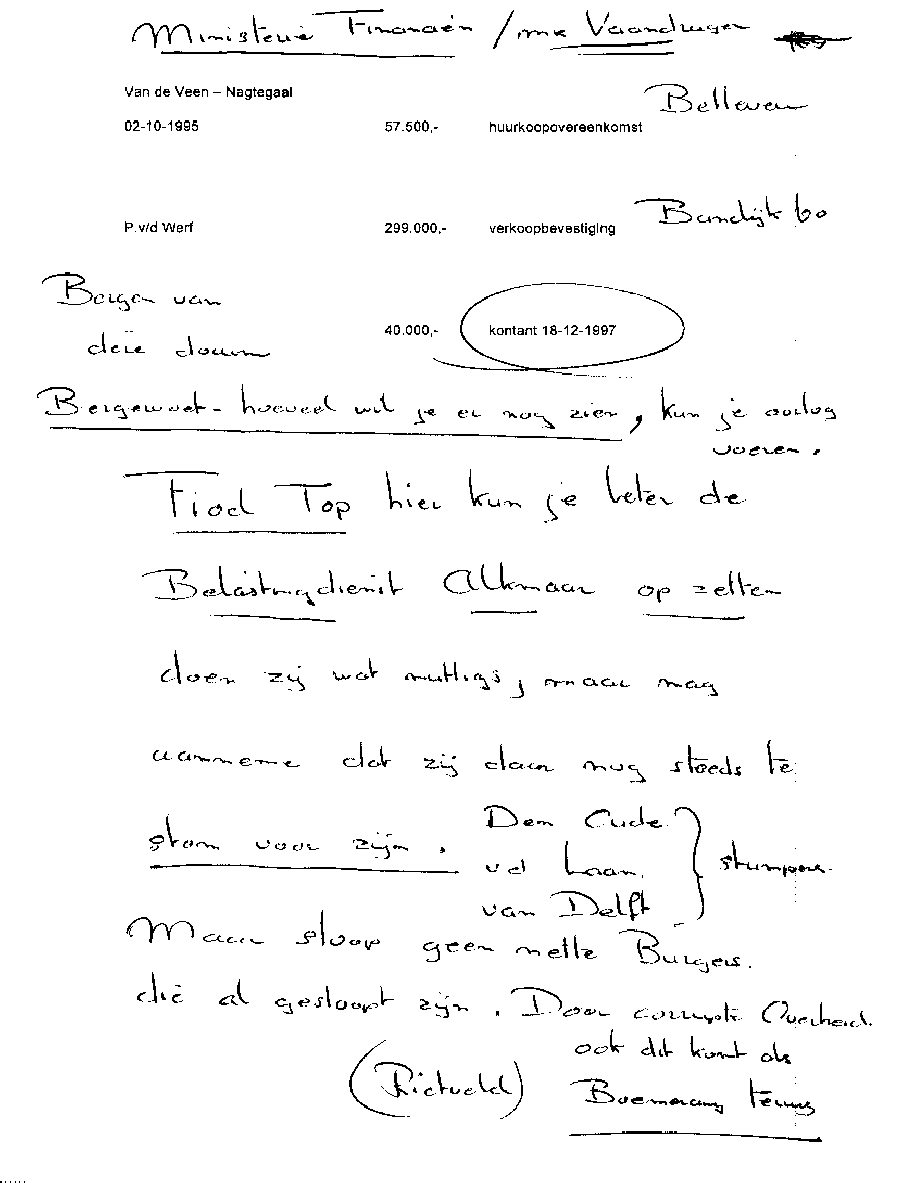 Ministerie Financiën / mr Vaandrager
Van de Veen – Nagtegaal
Belleven
02-10-1995 57.500,- huurkoopovereenkomst
P.v/d Werf 299.000,- verkoopbevestiging Bandijk 60
Bergen van
deze douwn
40.000,- kontant 18-12-1997
Bergewoet - hoeveel wil je er nog zien, kun je oorlog
voeren.
Fiod Top hier kun je beter de
Belastingdienst Alkmaar op zetten
doen zij wat nuttigs, maar mag
aanneme dat zij daar nog steeds te
stom voor zijn.
Den Oude
vd Laan.
van Delft
stumpers.
Maar sloop geen nette Burgers.
die al gesloopt zijn. Door corrupte Overheid.
ook dit komt als
(Rietveld) Boemerang terug